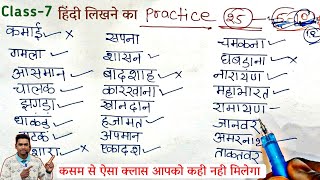 Class-7 हिंदी लिखने का practice 25
कमाई
गमला
आसमान
चालक
झगड़ा
धाकड़
सपना
शासन
बादशाह
कारखाना
खानदान
हजामत
अपमान
एकादश
चमकना
घबडाना
नारायण
महाभारत
रामायण
जानवर
ताकतवर
कसम से ऐसा क्लास आपको कही नही मिलेगा